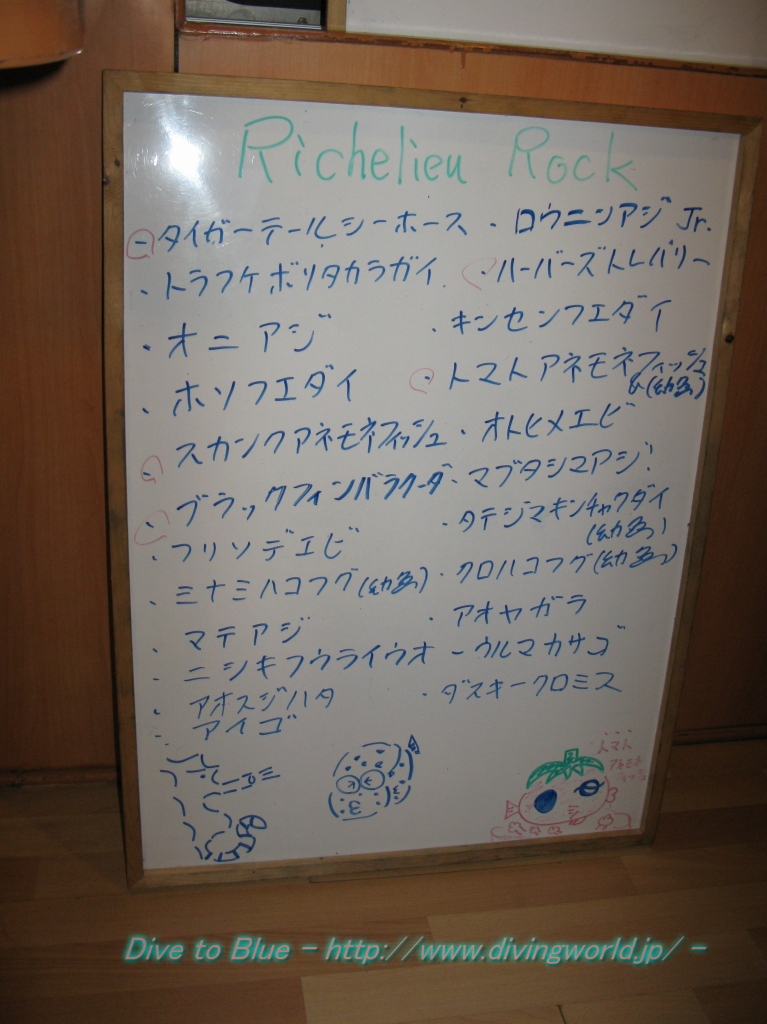 Richelieu Rock
・タイガーテールシーホース
・ロウニンアジ Jr.
・トラフケボリタカラガイ
・ハーバーズトレバリー
・オニアジ
・キンセンフエダイ
・ホソフエダイ
・トマトアネモネフィッシュ
&(幼魚)
・スカンクアネモネフィッシュ
・オトヒメエビ
・ブラックフィンバラクーダ
・マブタシマアジ!
・フリソデエビ
・タテジマキンチャクダイ
(幼魚)
・ミナミハコフグ(幼魚)
・クロハコフグ(幼魚)
・マテアジ
・アオヤガラ
・ニシキフウライウオ
・ウルマカサゴ
・アオスジハタ
・ダスキークロミス
・アイゴ
トマト
アネモネ
フィッシュ
Dive to Blue - http://www.divingworld.jp/ -